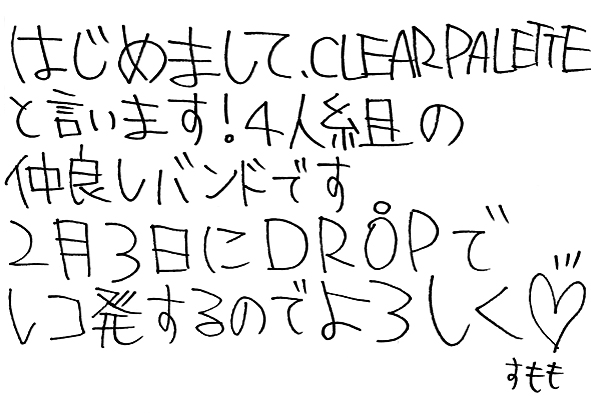 はじめまして、CLEARPALETTE
と言います!4人組の
仲良しバンドです
2月3日にDROPで
レコ発するのでよろしく♡
すもも